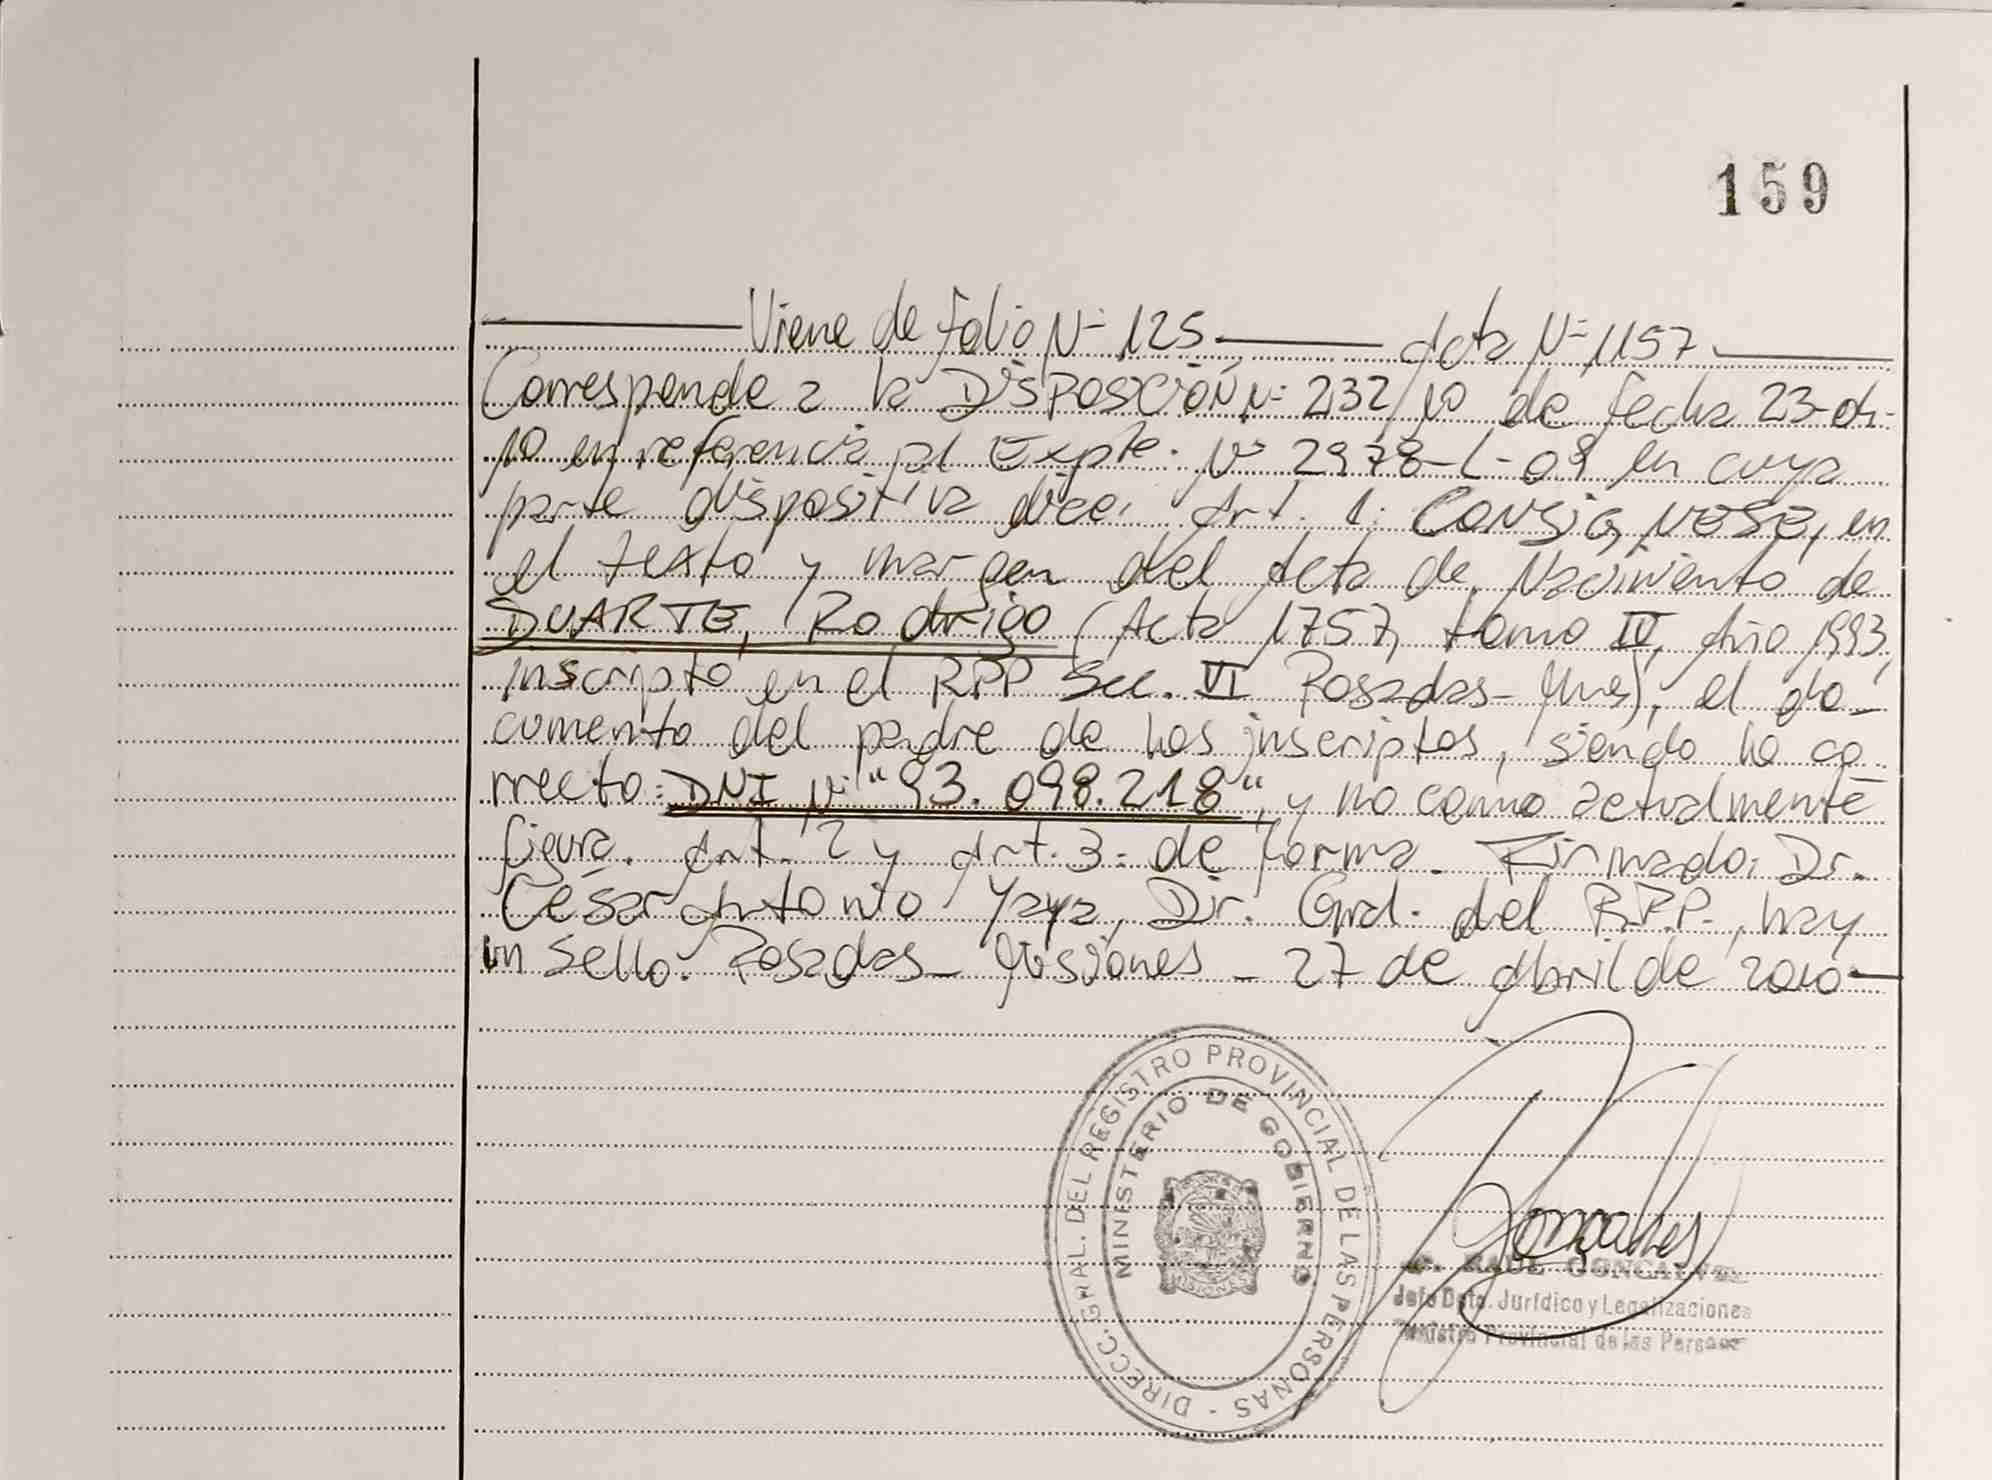 159
Viene de folio Nº 125 Acta Nº 1157
Corresponde a la DISPOSICIÓN Nº 2132/10 de fecha 23-04-
10 en referencia al Expte. Nº 2978-L-09 en cuya
parte dispositiva dice: Art. 1: CONSIGNESE, en
el texto y margen del Acta de Nacimiento de
DUARTE, Rodrigo (Acta 1757, tomo IV, Año 1993,
inscripto en el RPP Sec. VI Posadas-Mnes), el do-
cumento del padre de los inscriptos, siendo lo co-
rrecto: DNI Nº "93.098.218", y no como actualmente
figura. Art. 2 y Art. 3: de forma. Firmado: Dr.
César Antonio Yaya, Dir. Gral. del R.P.P., hay
un sello. Posadas - Misiones - 27 de Abril de 2010
DIRECC. GRAL. DEL REGISTRO PROVINCIAL DE LAS PERSONAS -
MINISTERIO DE GOBIERNO
MISIONES
RAUL GONCALVES
Jefe Dpto. Jurídico y Legalizaciones
Provincial de las Personas